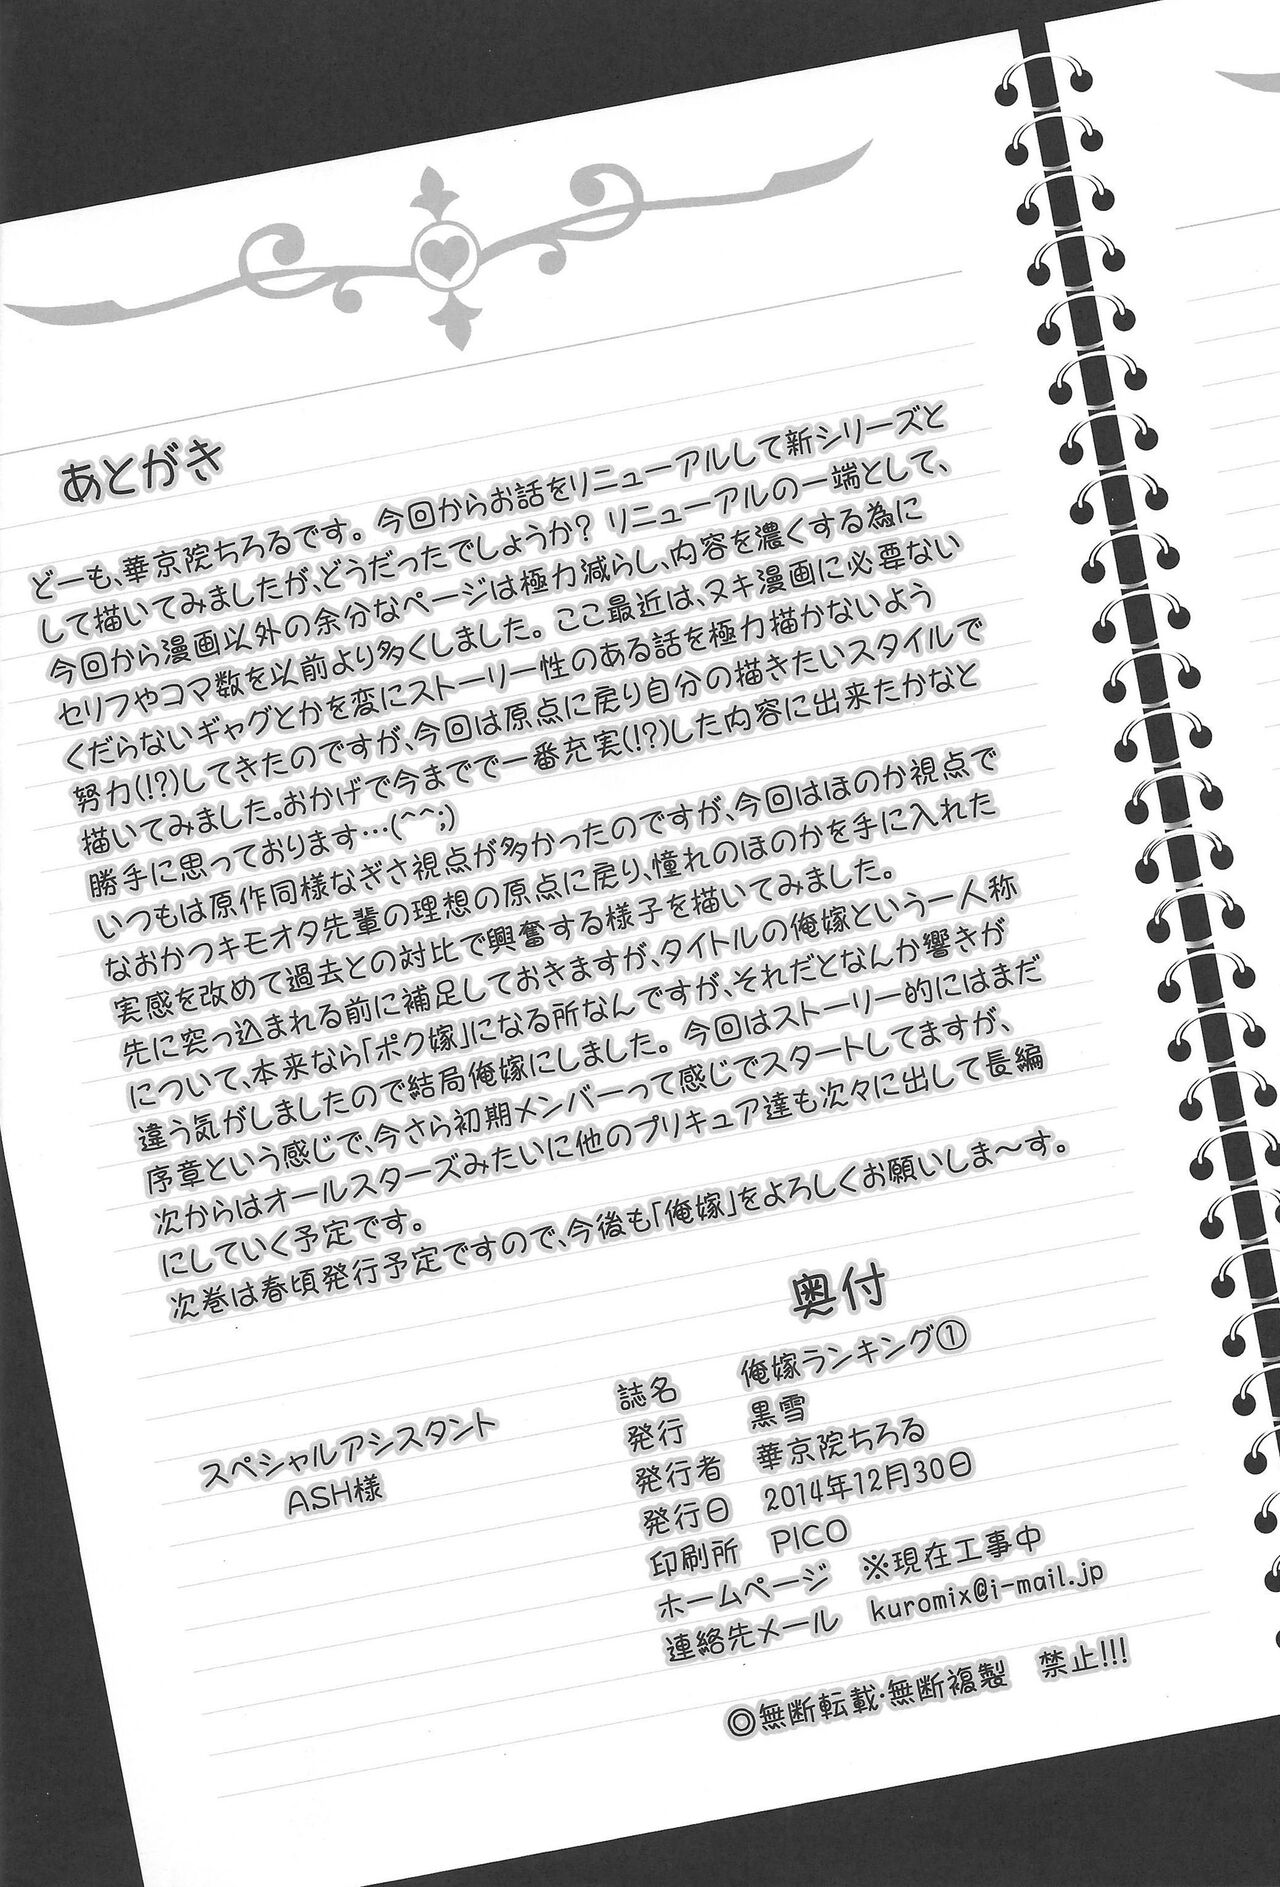 あとがき
どーも、華京院ちろるです。今回からお話をリニューアルして新シリーズと
して描いてみましたが、どうだったでしょうか？ リニューアルの一端として、
今回から漫画以外の余分なページは極力減らし、内容を濃くする為に
セリフやコマ数を以前より多くしました。ここ最近は、ヌキ漫画に必要ない
くだらないギャグとかを変にストーリー性のある話を極力描かないよう
努力(!?)してきたのですが、今回は原点に戻り自分の描きたいスタイルで
描いてみました。おかげで今までで一番充実(!?)した内容に出来たかなと
勝手に思っております…(^^;)
いつもは原作同様なぎさ視点が多かったのですが、今回はほのか視点で
なおかつキモオタ先輩の理想の原点に戻り、憧れのほのかを手に入れた
実感を改めて過去との対比で興奮する様子を描いてみました。
先に突っ込まれる前に補足しておきますが、タイトルの俺嫁という一人称
について、本来なら「ポク嫁」になる所なんですが、それだとなんか響きが
違う気がしましたので結局俺嫁にしました。今回はストーリー的にはまだ
序章という感じで、今さら初期メンバーって感じでスタートしてますが、
次からはオールスターズみたいに他のプリキュア達も次々に出して長編
にしていく予定です。
次巻は春頃発行予定ですので、今後も「俺嫁」をよろしくお願いしま〜す。
スペシャルアシスタント
ASH様
奥付
誌名 俺嫁ランキング①
発行 黒雪
発行者 華京院ちろる
発行日 2014年12月30日
印刷所 PICO
ホームページ ※現在工事中
連絡先メール kuromix@i-mail.jp
◎無断転載・無断複製 禁止!!!